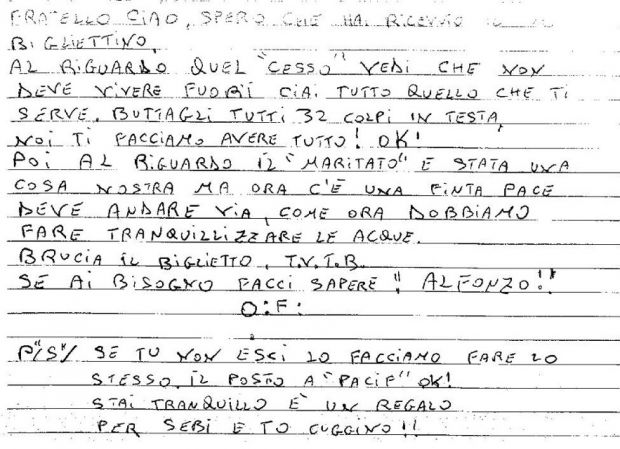 FRATELLO CIAO, SPERO CHE HAI RICEVUTO IL
BIGLIETTINO,
AL RIGUARDO QUEL "CESSO" VEDI CHE NON
DEVE VIVERE FUORI CIAI TUTTO QUELLO CHE TI
SERVE, BUTTAGLI TUTTI 32 COLPI IN TESTA,
NOI TI FACCIAMO AVERE TUTTO! OK!
POI AL RIGUARDO IL "MARITATO" E STATA UNA
COSA NOSTRA MA ORA C'È UNA FINTA PACE
DEVE ANDARE VIA, COME ORA DOBBIAMO
FARE TRANQUILLIZZARE LE ACQUE.
BRUCIA IL BIGLIETTO, T.V.T.B.
SE AI BISOGNO FACCI SAPERE "ALFONZO!!"
O:F:
P"S"/ SE TU NON ESCI LO FACCIAMO FARE LO
STESSO, IL POSTO A "PACIF" OK!
STAI TRANQUILLO È UN REGALO
PER SEBI E TO CUGGINO!!